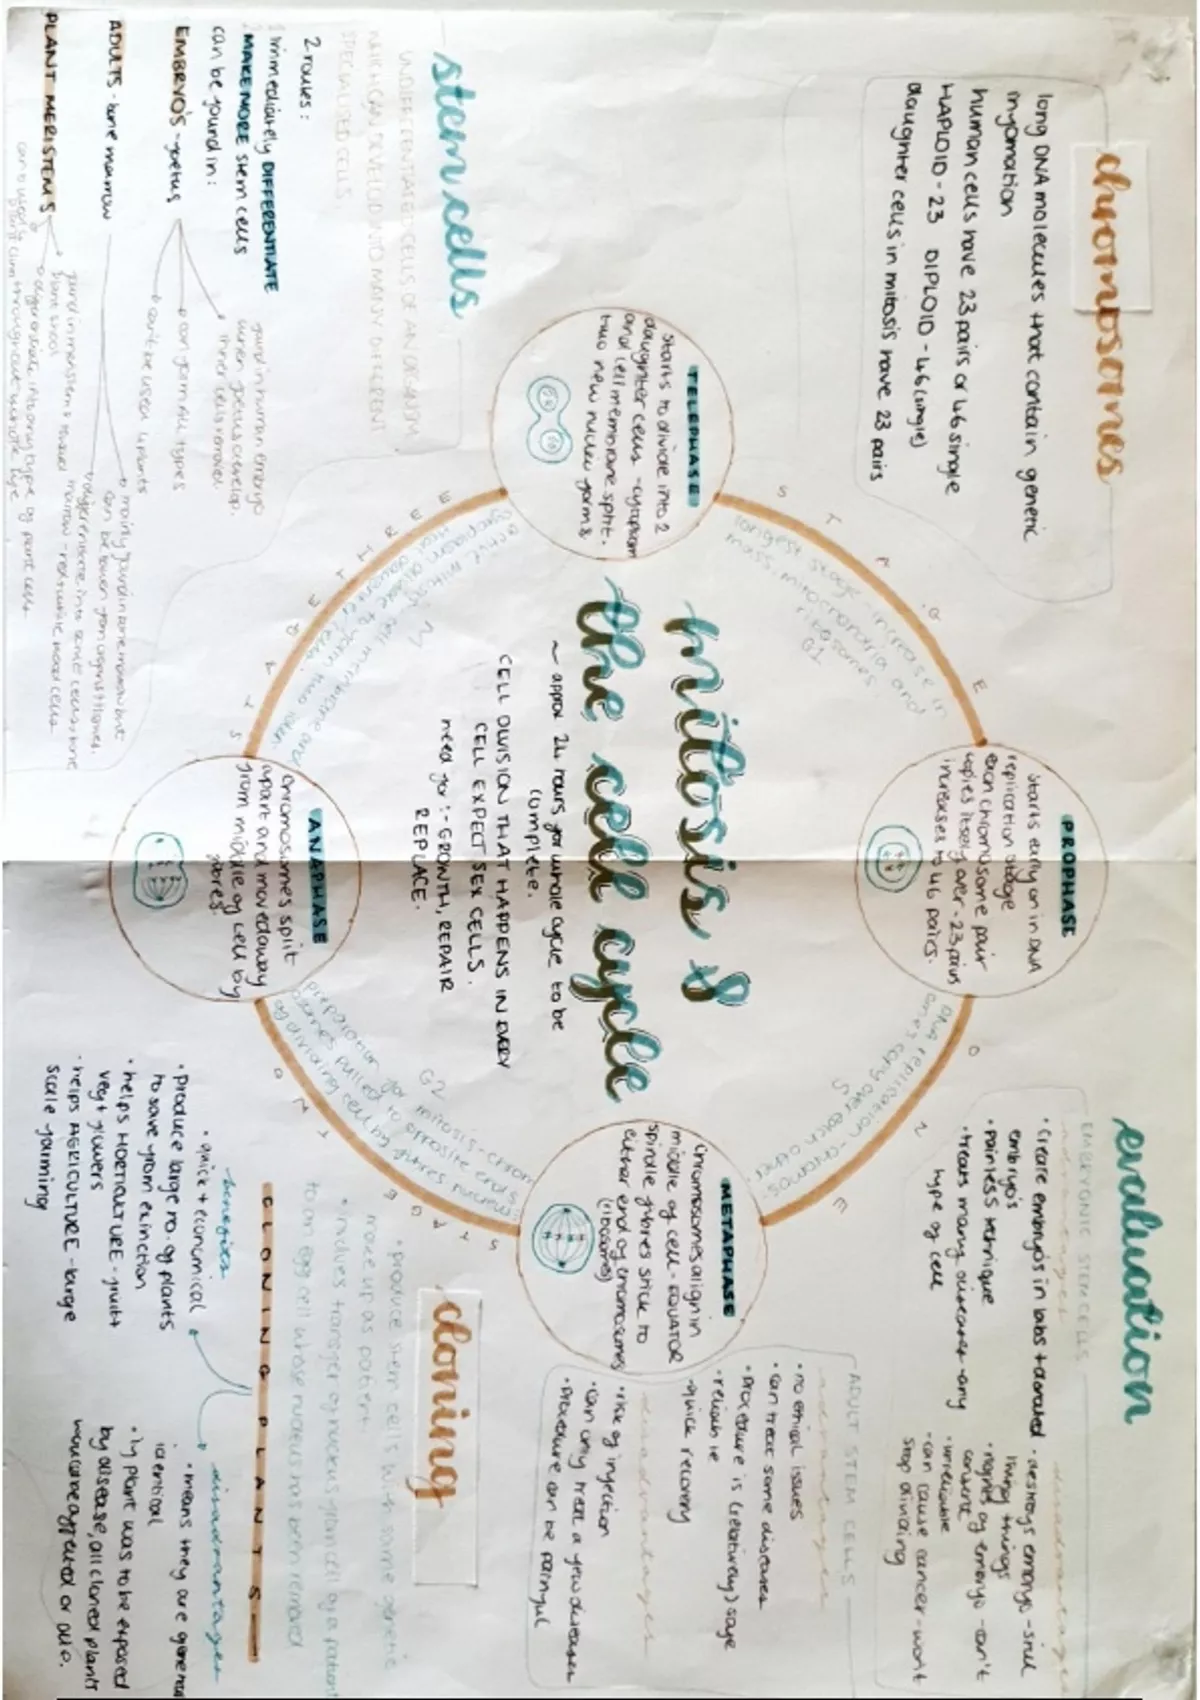 chromosomes
long DNA molecules that contain genetic
information
human cells have 23 pairs or 46 single
HAPLOID - 23 DIPLOID - 46 (single)
daughter cells in mitosis have 23 pairs
stem cells
UNDIFFERENTIATED CELLS OF AN ORGANISM
WHICH CAN DEVELOP INTO MANY DIFFERENT
SPECIALISED CELLS
2 routes:
1 immediately DIFFERENTIATE
2 MAKE MORE stem cells
can be found in:
EMBRYO'S - foetus
found in human embryo
when foetus develop.
inner cells removed
can form all types
can't be used 4 plants
ADULTS - bone marrow
mainly found in bone marrow but
can be taken from organs + tissues.
PLANT MERISTEMS
found in meristem +
plant shoot
differentiate into any type of plant cell
mitosis &
the cell cycle
~ approx 24 hours for whole cycle to be
complete.
CELL DIVISION THAT HAPPENS IN EVERY
CELL EXPECT SEX CELLS.
need for :- GROWTH, REPAIR
REPLACE.
TELEPHASE
Starts to divide into 2
daughter cells - cytoplasm
and cell membrane split.
two new nuclei forms
STAGE
longest stage - increase in
mass, mitochondria and
ribosomes.
G1
PROPHASE
Starts early on in DNA
replication stage
each chromosome pair
copies itself over - 23 pairs
increases to 46 pairs.
DNA replication - chromos-
omes copy over each other
S
METAPHASE
chromosomes align in
middle of cell - EQUATOR
spindle fibres stick to
either end of chromosomes
(ribosomes)
preparation for mitosis - chrom
osomes pulled to opposite ends
of dividing cell by fibres
G2
ANAPHASE
Chromosomes split
apart and moved away
from middle of cell by
fibres.
M
evaluation
EMBRYONIC STEM CELLS
advantages
• create embryos in labs + donated
embryo's
• painless technique
• treats many diseases - any
type of cell
disadvantages
• destroys embryo - still
living things
• rights of embryo - can't
consent
• unreliable
• can cause cancer - won't
stop dividing
ADULT STEM CELLS
advantages
• no ethical issues
• can treat some diseases
• Procedure is (relatively) safe
• reliable
• quick recovery
disadvantages
• risk of infection
• can only treat a few diseases
• Procedure can be painful
cloning
• produce stem cells with same genetic
make up as patient
• involves transfer of nucleus from cell of a patient
to an egg cell whose nucleus has been removed
CLONING PLANTS
benefits
• quick + economical
• produce large no. of plants
to save from extinction
• helps HORTICULTURE - fruit +
veg + flowers
• helps AGRICULTURE - large
scale farming
disadvantages
• means they are genetical
identical
• if plant was to be exposed
by disease, all cloned plants
would be affected or die.